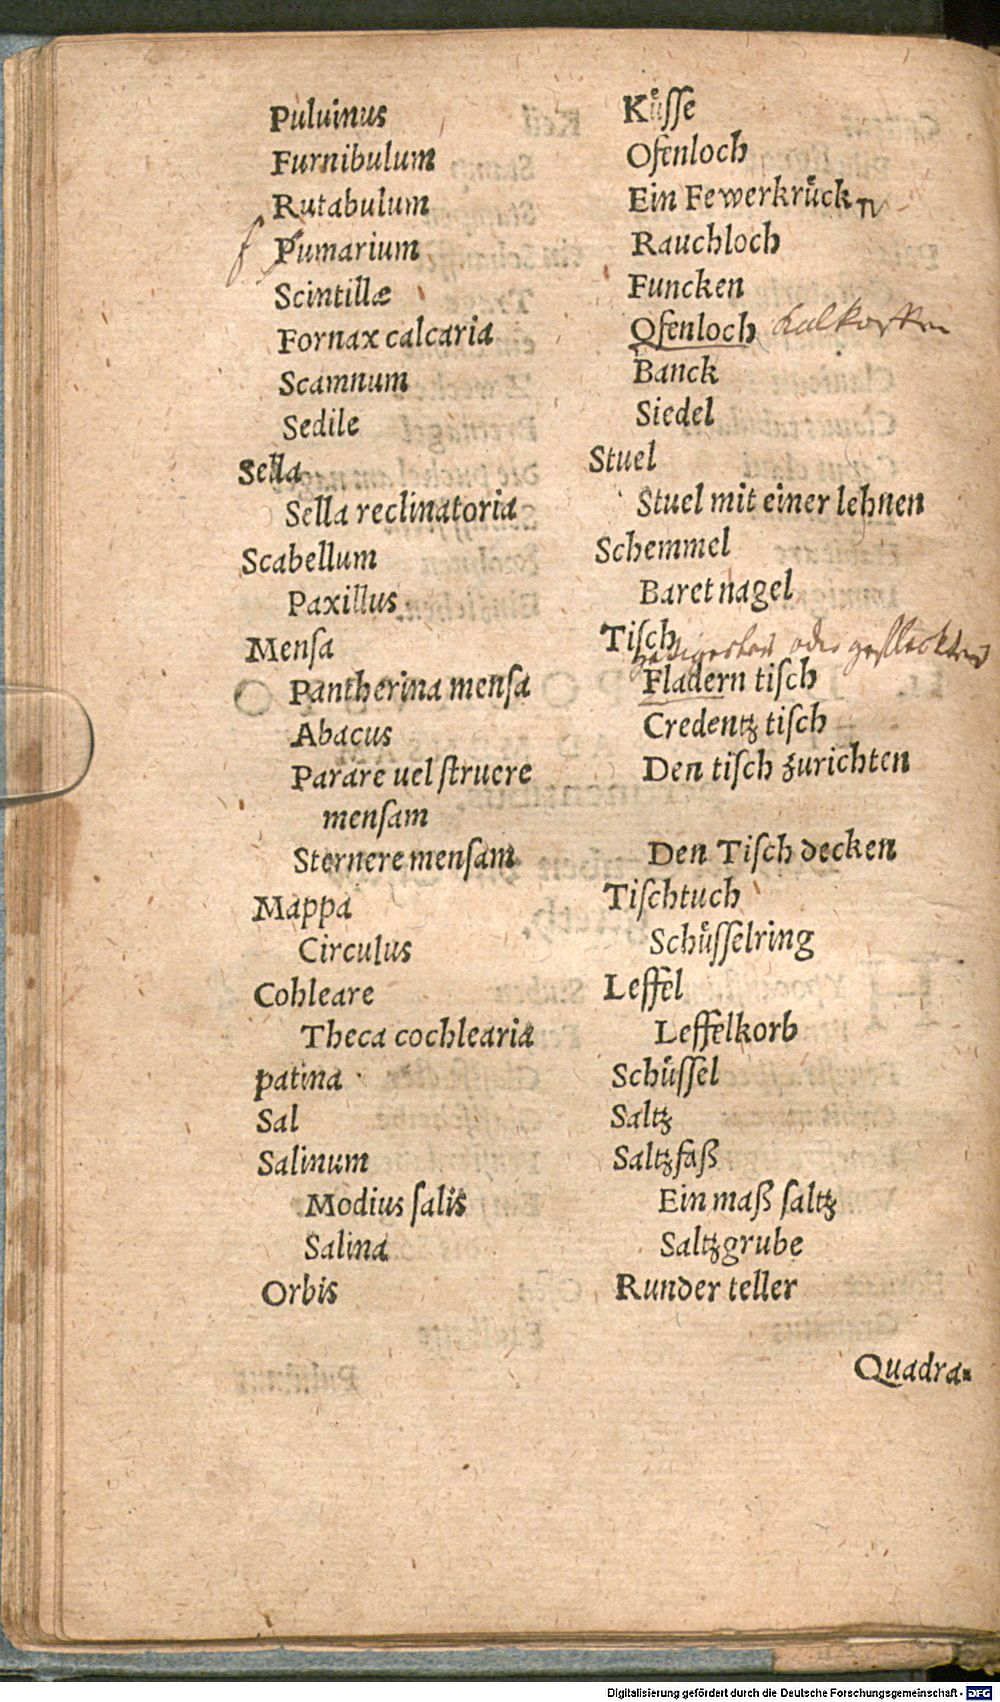 Puluinus Kuͤſſe
Furnibulum Ofenloch
Rutabulum Ein Fewerkruͤck
Pumarium Rauchloch
Scintillæ Funcken
Fornax calcaria Ofenloch
Scamnum Banck
Sedile Siedel
Sella Stuel
Sella reclinatoria Stuel mit einer lehnen
Scabellum Schemmel
Paxillus Baret nagel
Menſa Tiſch
oder gefleckter
Pantherina menſa Fladern tiſch
Abacus Credentz tiſch
Parare uel ſtruere Den tiſch zurichten
menſam
Sternere menſam Den Tiſch decken
Mappa Tiſchtuch
Circulus Schuͤſſelring
Cohleare Leffel
Theca cochlearia Leffelkorb
patina Schuͤſſel
Sal Saltz
Salinum Saltzfaß
Modius ſalis Ein maß ſaltz
Salina Saltzgrube
Orbis Runder teller
Quadra⸗
Digitalisierung gefördert durch die Deutsche Forschungsgemeinschaft - DFG